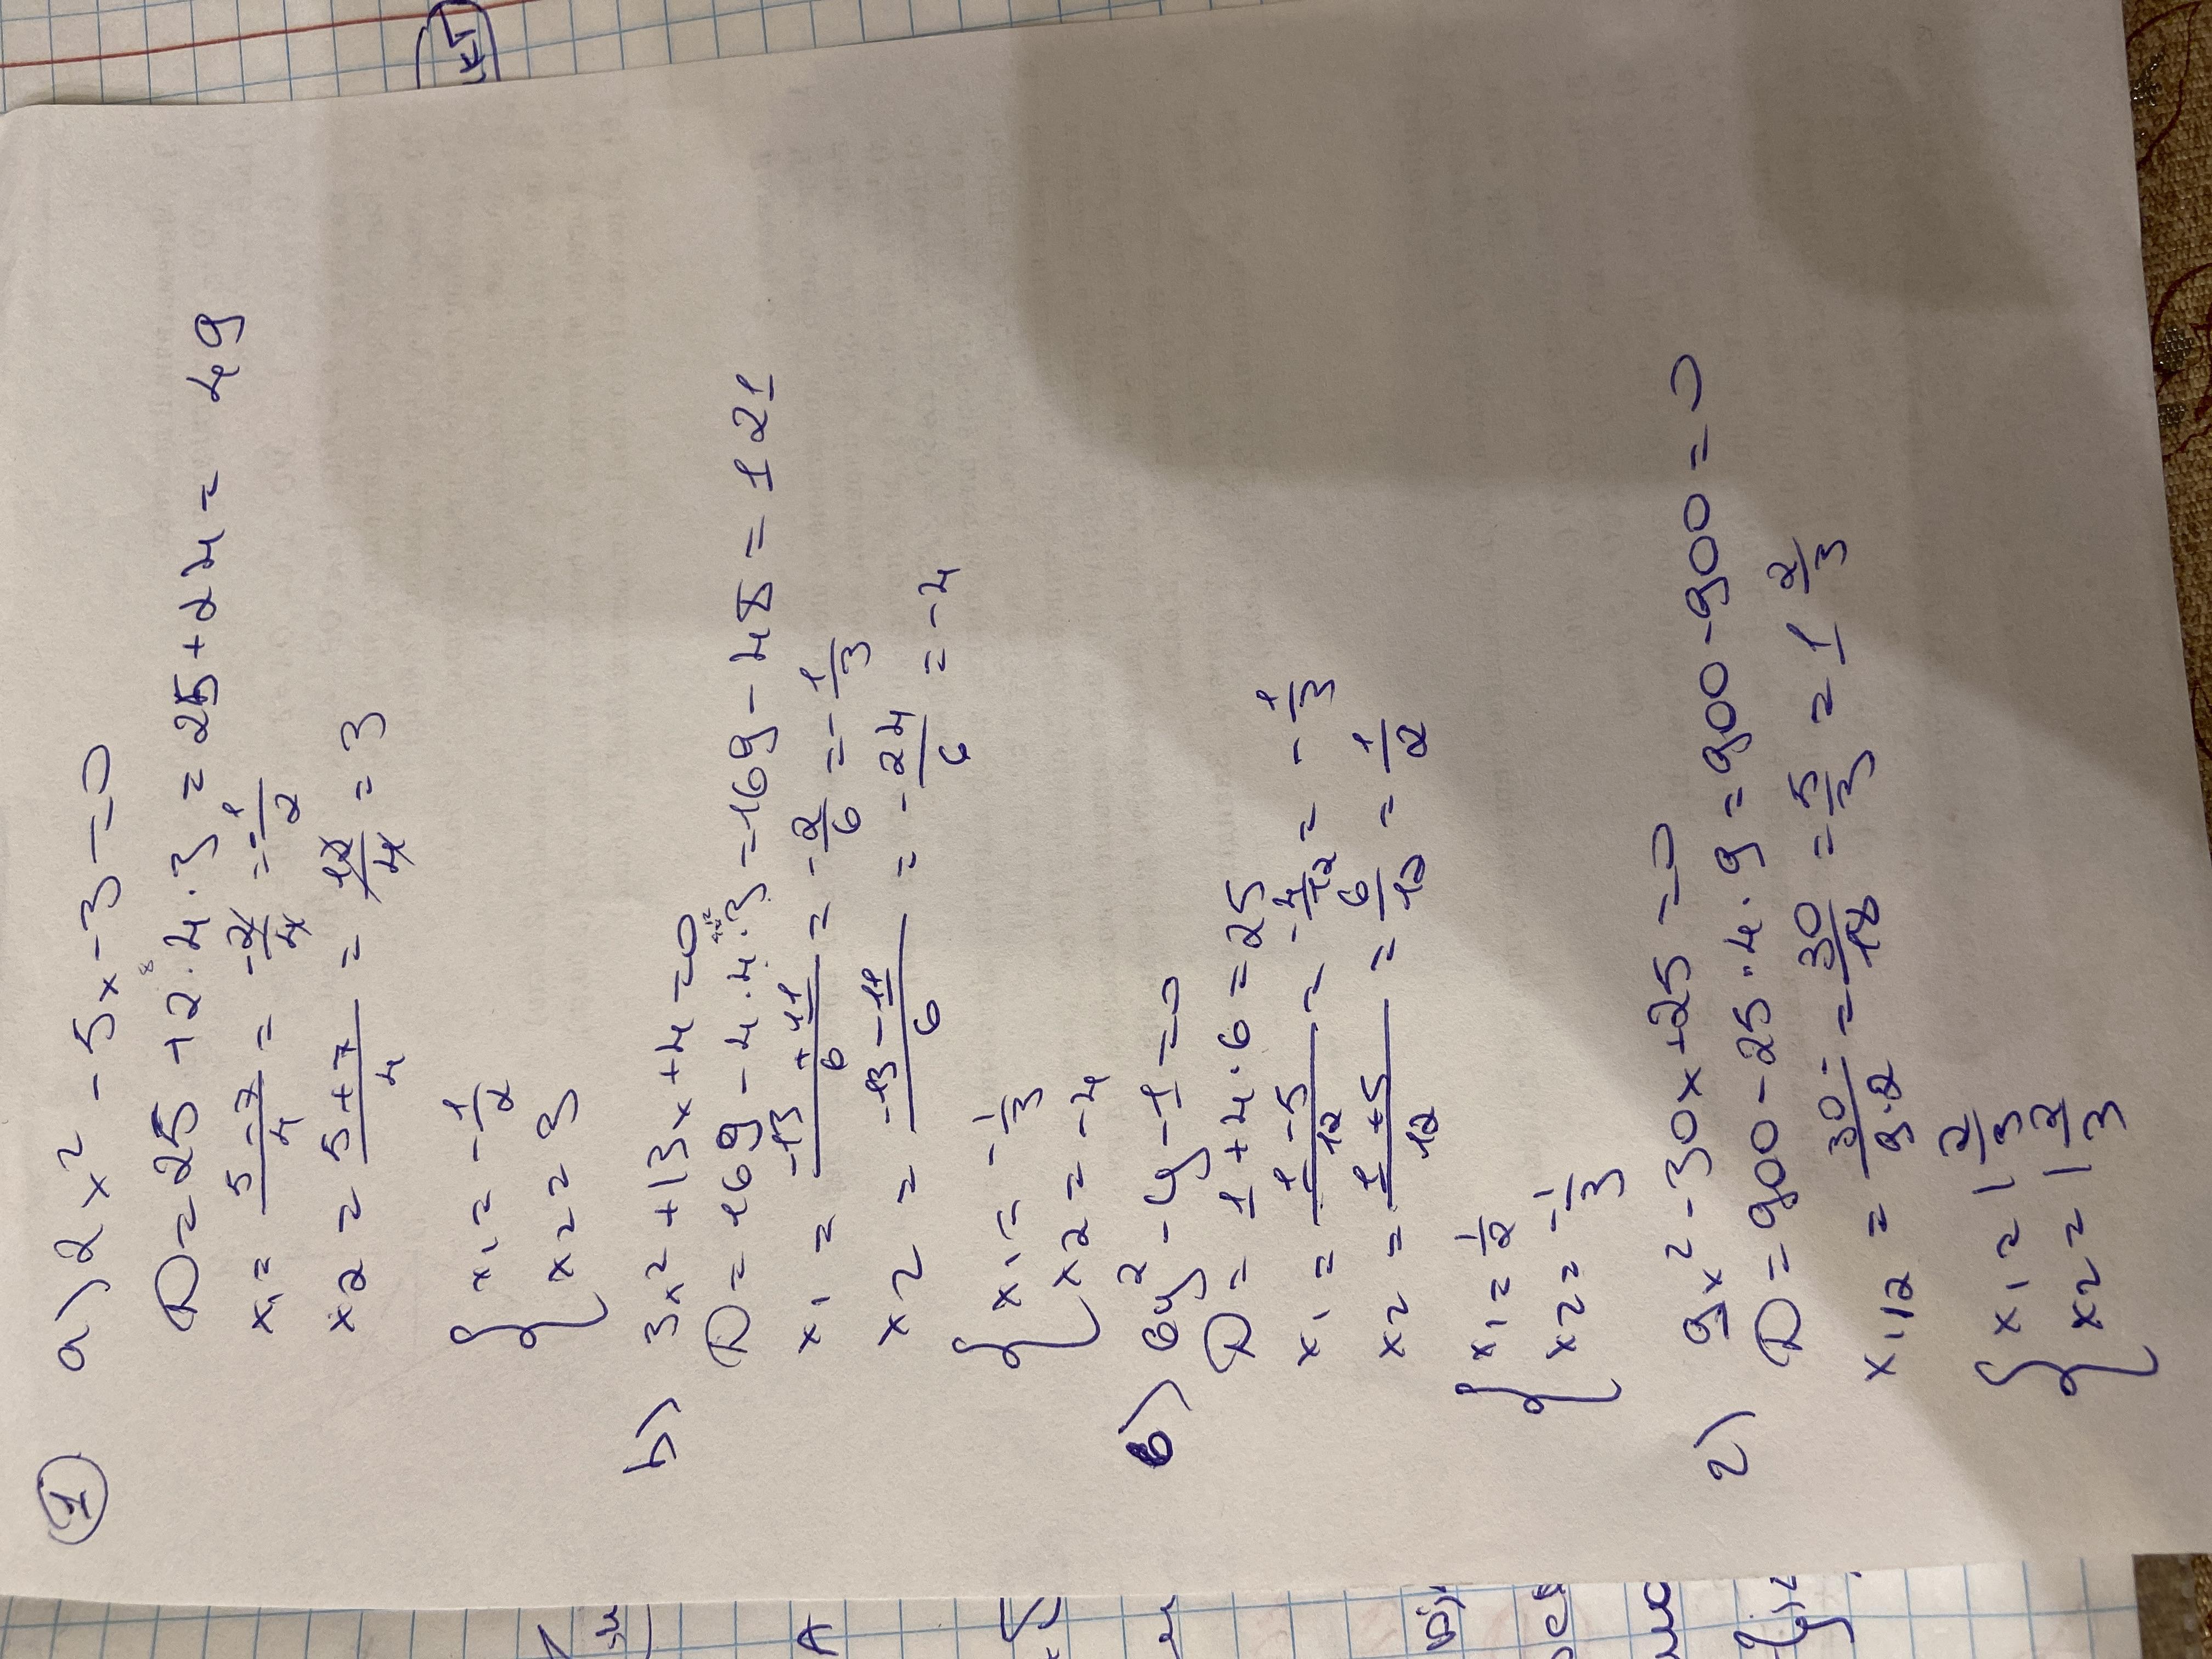 1
а) 2x² - 5x - 3 = 0
D = 25 + 2·4·3 = 25 + 24 = 49
x₁ = (5 - 7)/4 = -2/4 = -1/2
x₂ = (5 + 7)/4 = 12/4 = 3
{ x₁ = -1/2
x₂ = 3
б) 3x² + 13x + 4 = 0
D = 169 - 4·4·3 = 169 - 48 = 121
x₁ = (-13 + 11)/6 = -2/6 = -1/3
x₂ = (-13 - 11)/6 = -24/6 = -4
{ x₁ = -1/3
x₂ = -4
в) 6y² - y - 1 = 0
D = 1 + 4·6 = 25
x₁ = (1 - 5)/12 = -4/12 = -1/3
x₂ = (1 + 5)/12 = 6/12 = 1/2
{ x₁ = 1/2
x₂ = -1/3
г) 9x² - 30x + 25 = 0
D = 900 - 25·4·9 = 900 - 900 = 0
x₁,₂ = 30/(9·2) = 30/18 = 5/3 = 1 2/3
{ x₁ = 1 2/3
x₂ = 1 2/3